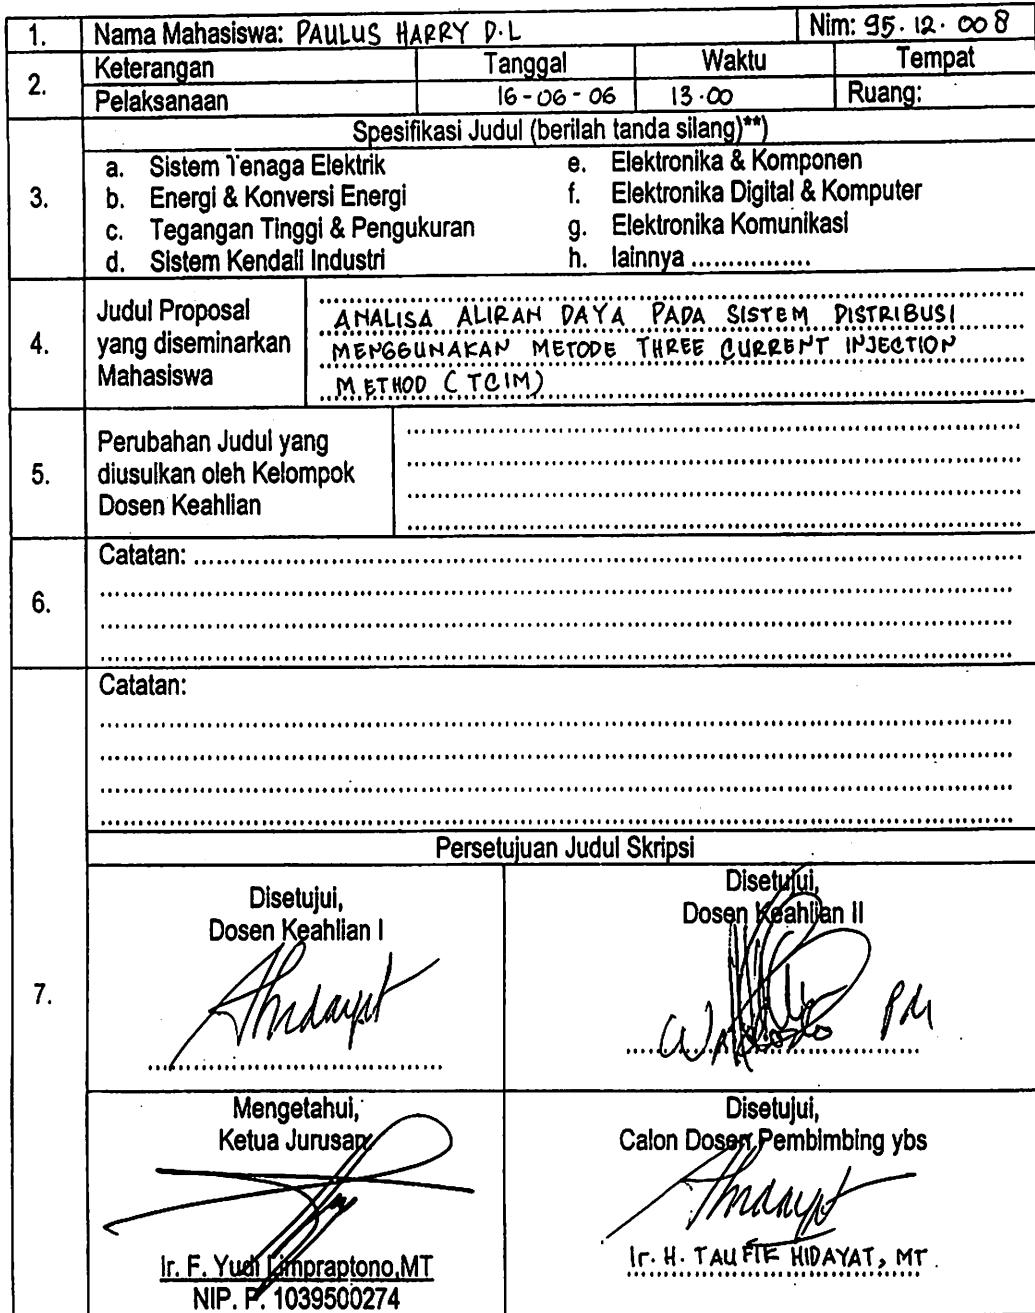 1. Nama Mahasiswa: PAULUS HARRY D.L Nim: 95.12.008
2. Keterangan Tanggal Waktu Tempat
Pelaksanaan 16-06-06 13.00 Ruang:
3. Spesifikasi Judul (berilah tanda silang)**)
a. Sistem Tenaga Elektrik e. Elektronika & Komponen
b. Energi & Konversi Energi f. Elektronika Digital & Komputer
c. Tegangan Tinggi & Pengukuran g. Elektronika Komunikasi
d. Sistem Kendali Industri h. lainnya ................
4. Judul Proposal yang diseminarkan Mahasiswa
ANALISA ALIRAN DAYA PADA SISTEM DISTRIBUSI
MENGGUNAKAN METODE THREE CURRENT INJECTION
METHOD (TCIM)
5. Perubahan Judul yang
diusulkan oleh Kelompok
Dosen Keahlian
6. Catatan:
Catatan:
7. Persetujuan Judul Skripsi
Disetujui,
Dosen Keahlian I
Disetujui,
Dosen Keahlian II
Mengetahui,
Ketua Jurusan
Ir. F. Yudi Limpraptono,MT
NIP. P. 1039500274
Disetujui,
Calon Dosen Pembimbing ybs
Ir. H. TAUFIK HIDAYAT, MT